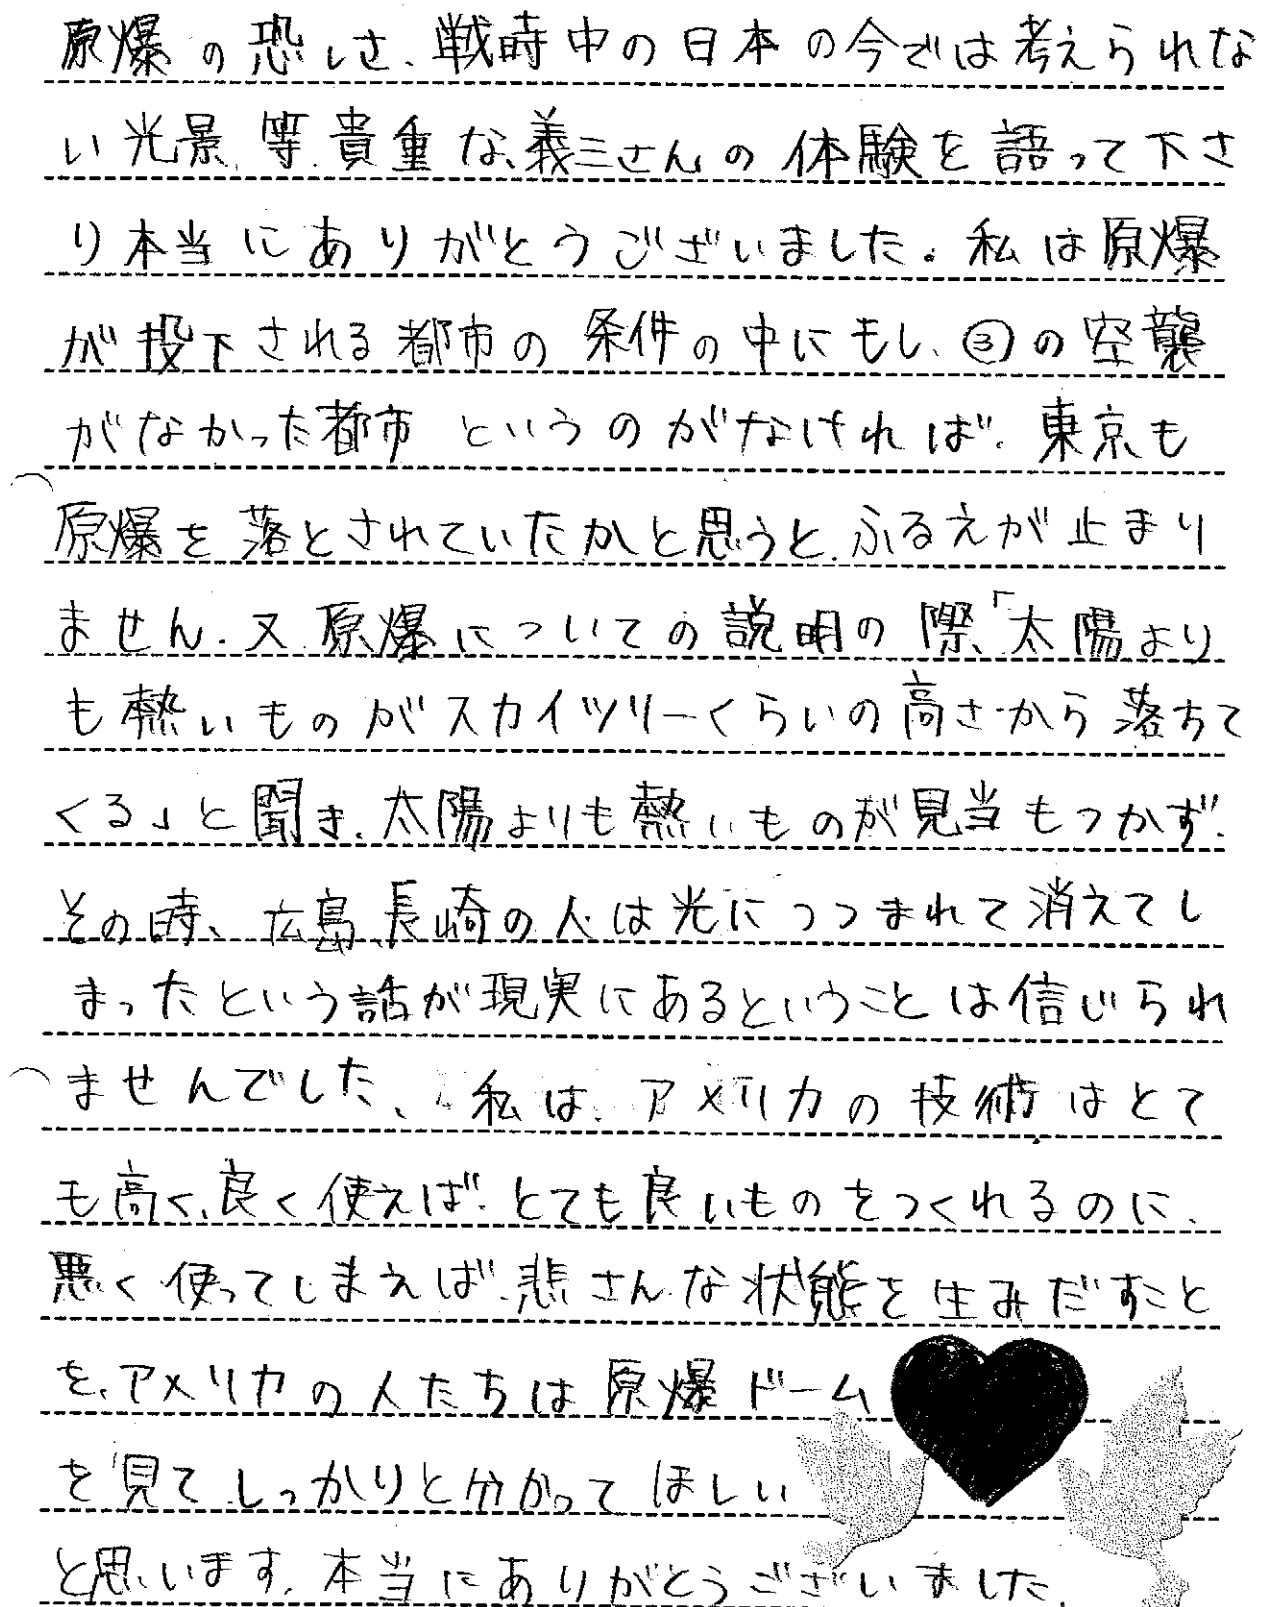 原爆の恐しさ、戦時中の日本の今では考えられな
い光景、等、貴重な、義三さんの体験を語って下さ
り本当にありがとうございました。私は原爆
が投下される都市の条件の中にもし、③の空襲
がなかった都市というのがなければ、東京も
原爆を落とされていたかと思うと、ふるえが止まり
ません。又、原爆についての説明の際、「太陽より
も熱いものがスカイツリーくらいの高さから落ちて
くる」と聞き、太陽よりも熱いものが見当もつかず、
その時、広島、長崎の人は光につつまれて消えてし
まったという話が現実にあるということは信じられ
ませんでした、私は、アメリカの技術はとて
も高く、良く使えば、とても良いものをつくれるのに、
悪く使ってしまえば、悲さんな状態を生みだすこと
を、アメリカの人たちは原爆ドーム
を見てしっかりと分かってほしい
と思います。本当にありがとうございました。